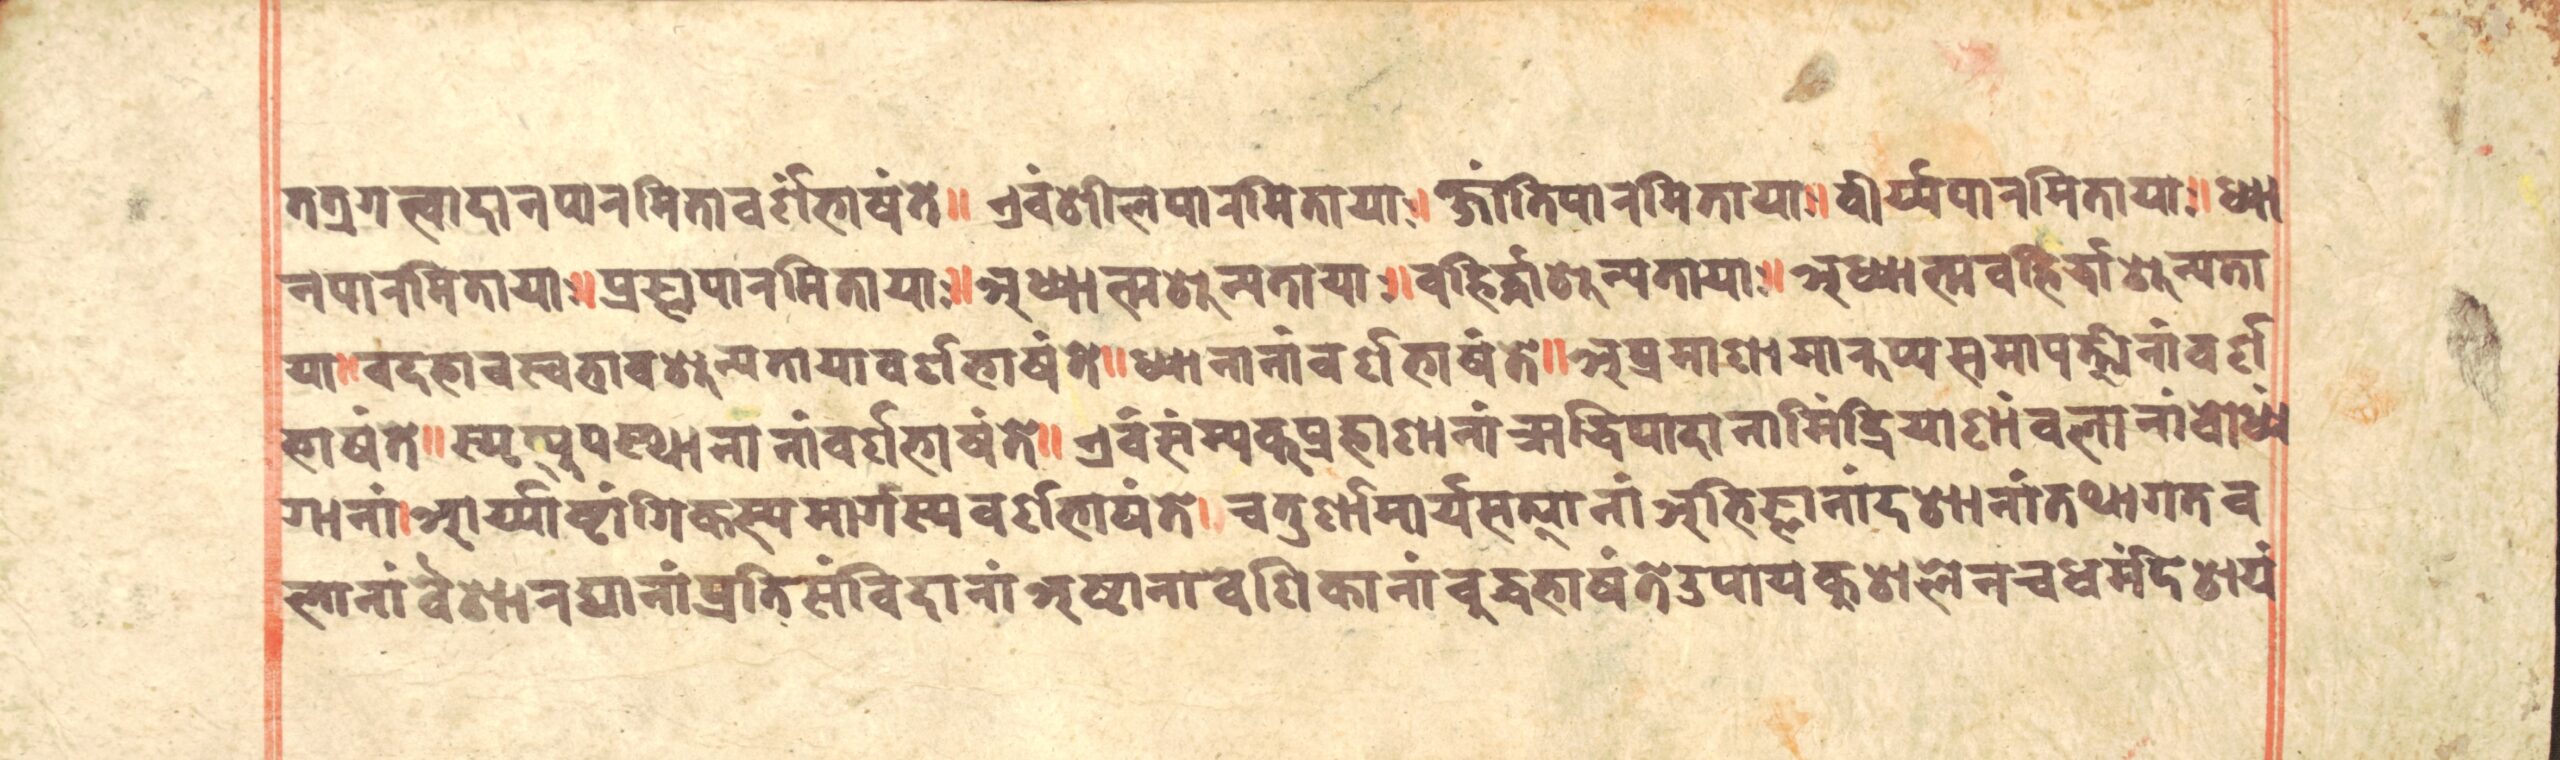 तत्रगत्वादानपारमितावर्णंभाषंते॥ एवंशीलपारमितायाः॥ क्षांतिपारमितायाः॥ वीर्य्यपारमितायाः॥ ध्या
नपारमितायाः॥ प्रज्ञापारमितायाः॥ अध्यात्मशून्यतायाः॥ वहिर्द्धाशून्यतायाः॥ अध्यात्मवहिर्द्धाशून्यता
या॥ वदभावस्वभावशून्यतायावर्णभाषंते॥ ध्यानानांवर्णभाषंते॥ अप्रमाणामारूप्यसमापत्तीनांवर्ण
भाषंते॥ स्मृत्युपस्थानानांवर्णभाषंते॥ एवंसंम्यक्प्रहाणानांऋद्धिपादानामिंद्रियाणांवलानांवोध्यं
गानां। आर्य्याष्टांगिकस्यमार्गस्यवर्णभाषंते। चतुर्णामार्यसत्यानांअभिज्ञानांदशानांतथागतव
लानांवैशारद्यानांप्रतिसंविदानांअष्टानावेणिकानांवुद्धभाषंतेउपायकुशलेनचधर्मंदेशयं